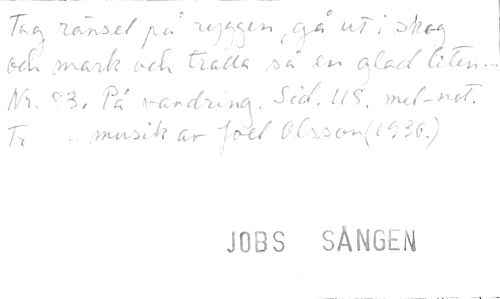 Tag ränsel på ryggen, gå ut i skog
och mark och tralla så en glad liten...
Nr. 83. På vandring. Sid. 118. mel-not.
musik av Joel Olsson (1930.)
JOBS SÅNGEN